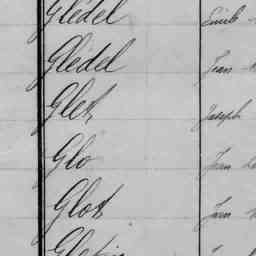 Glédel Emile
Glédel Jean
Glet Joseph
Glo Jean
Glot Jean